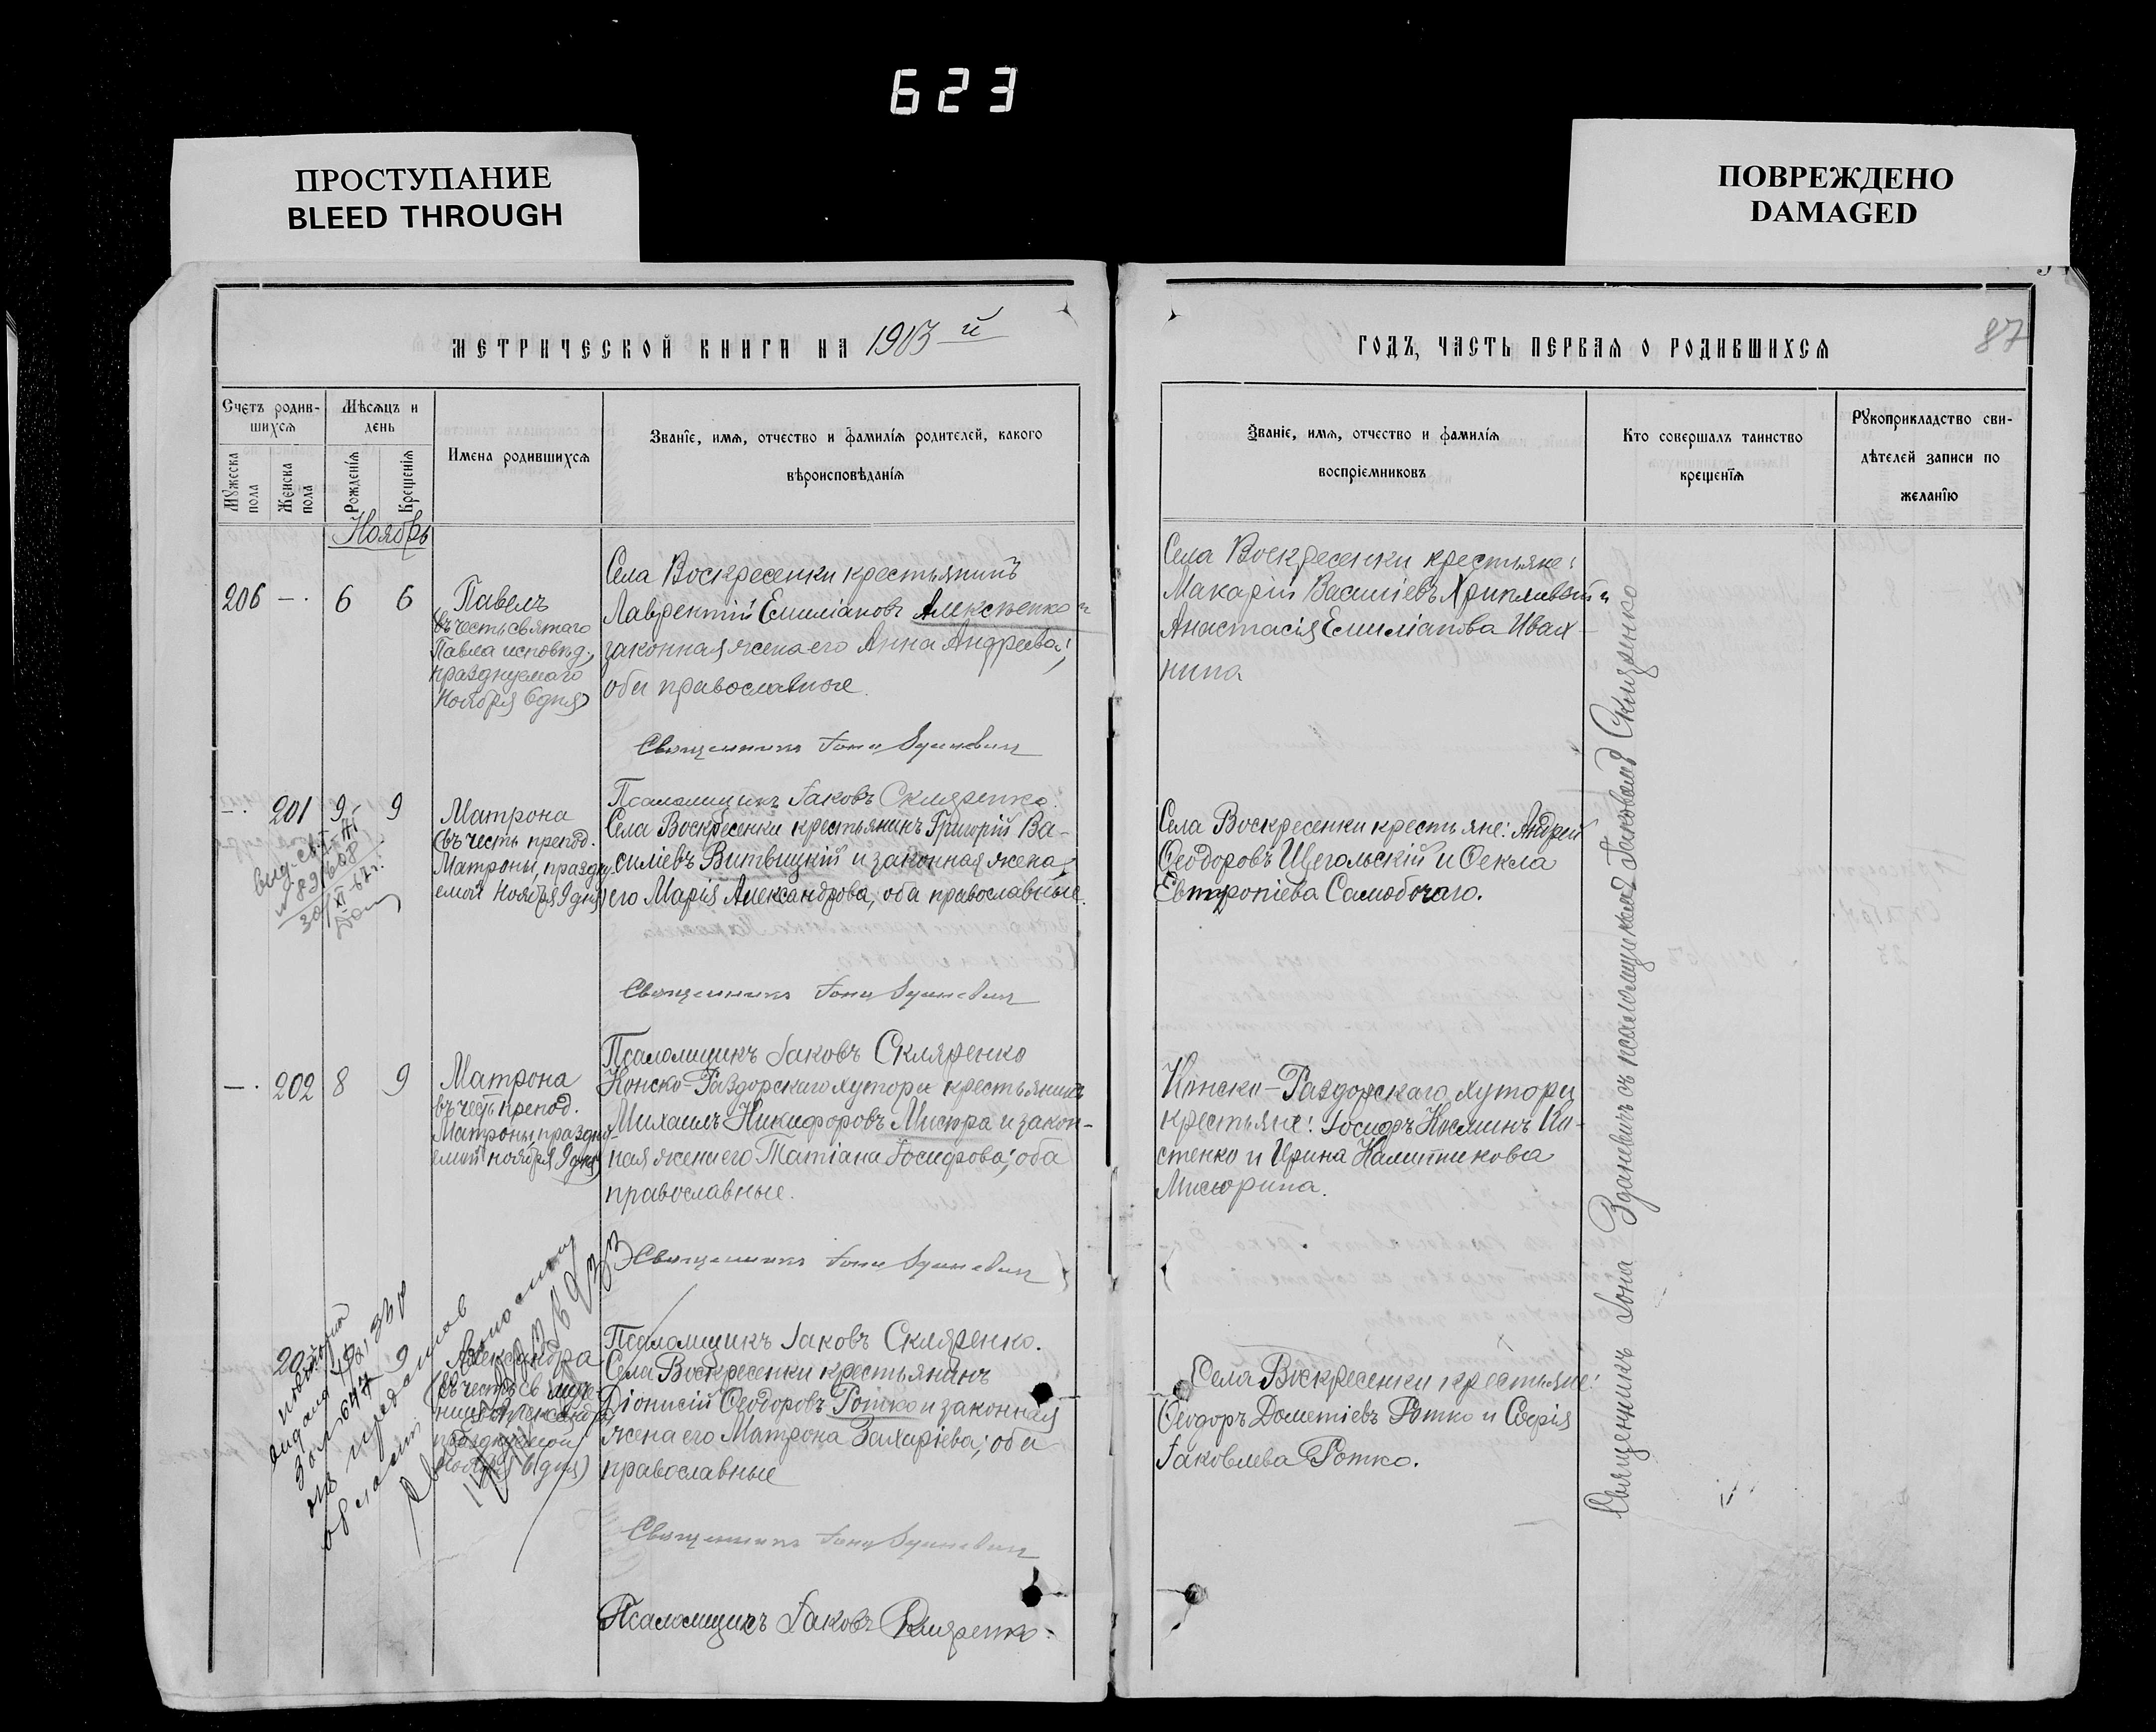 623
ПРОСТУПАНИЕ
BLEED THROUGH
ПОВРЕЖДЕНО
DAMAGED
МЕТРИЧЕСКОЙ КНИГИ НА 1903 й
Счетъ родив-
шихся
Мѣсяцъ и
день
Мужеска
пола
Женска
пола
Рожденія
Крещенія
Имена родившихся
Званіе, имя, отчество и фамилія родителей, какого
вѣроисповѣданія
Ноябрь
206 — . 6 6
Павелъ
(въ честь святаго
Павла исповѣд.,
празднуемаго
Ноября 6 дня)
Села Воскресенки крестьянинъ
Лаврентій Емиліановъ Алексѣенко и
законная жена его Анна Андреева;
оба православные.
Священникъ Іона Зданевичъ
Псаломщикъ Іаковъ Скляренко.
— . 201 9 9
Матрона
(въ честь препод.
Матроны, праздну-
емой Ноября 9 дня)
Села Воскресенки крестьянинъ Григорій Ва-
силіевъ Витвицкій и законная жена
его Марія Александрова, оба православные.
Священникъ Іона Зданевичъ
Псаломщикъ Іаковъ Скляренко
— . 202 8 9
Матрона
въ честь препод.
Матроны, праздну-
емой ноября 9 дня)
Конско-Раздорскаго хутора крестьянинъ
Михаилъ Никифоровъ Мисюра и закон-
ная жена его Татіана Іосифова; оба
православные.
Священникъ Іона Зданевичъ
Псаломщикъ Іаковъ Скляренко.
9
Александра
(въ честь св. муче-
ницы Александры
празднуемой
Ноября 6 дня)
Села Воскресенки крестьянинъ
Діонисій Ѳеодоровъ Ротко и законная
жена его Матрона Захаріева; оба
православные
Священникъ Іона Зданевичъ
Псаломщикъ Іаковъ Скляренко.
ГОДЪ, ЧАСТЬ ПЕРВАЯ О РОДИВШИХСЯ
87
Званіе, имя, отчество и фамилія
воспріемниковъ
Кто совершалъ таинство
крещенія
Рукоприкладство сви-
дѣтелей записи по
желанію
Села Воскресенки крестьяне:
Макарій Василіевъ Хрипливый и
Анастасія Емиліанова Ивах-
нина
Села Воскресенки крестьяне: Андрей
Ѳеодоровъ Щегольскій и Ѳекла
Евтропіева Самобочаго.
Конско-Раздорскаго хутора
крестьяне: Іосифъ Косминъ Ко-
стенко и Ирина Каллиникова
Мисюрина.
Села Воскресенки крестьяне:
Ѳеодоръ Дометіевъ Ротко и Софія
Іаковлева Ротко.
Священникъ Іона Зданевичъ съ псаломщикомъ Іаковомъ Скляренко